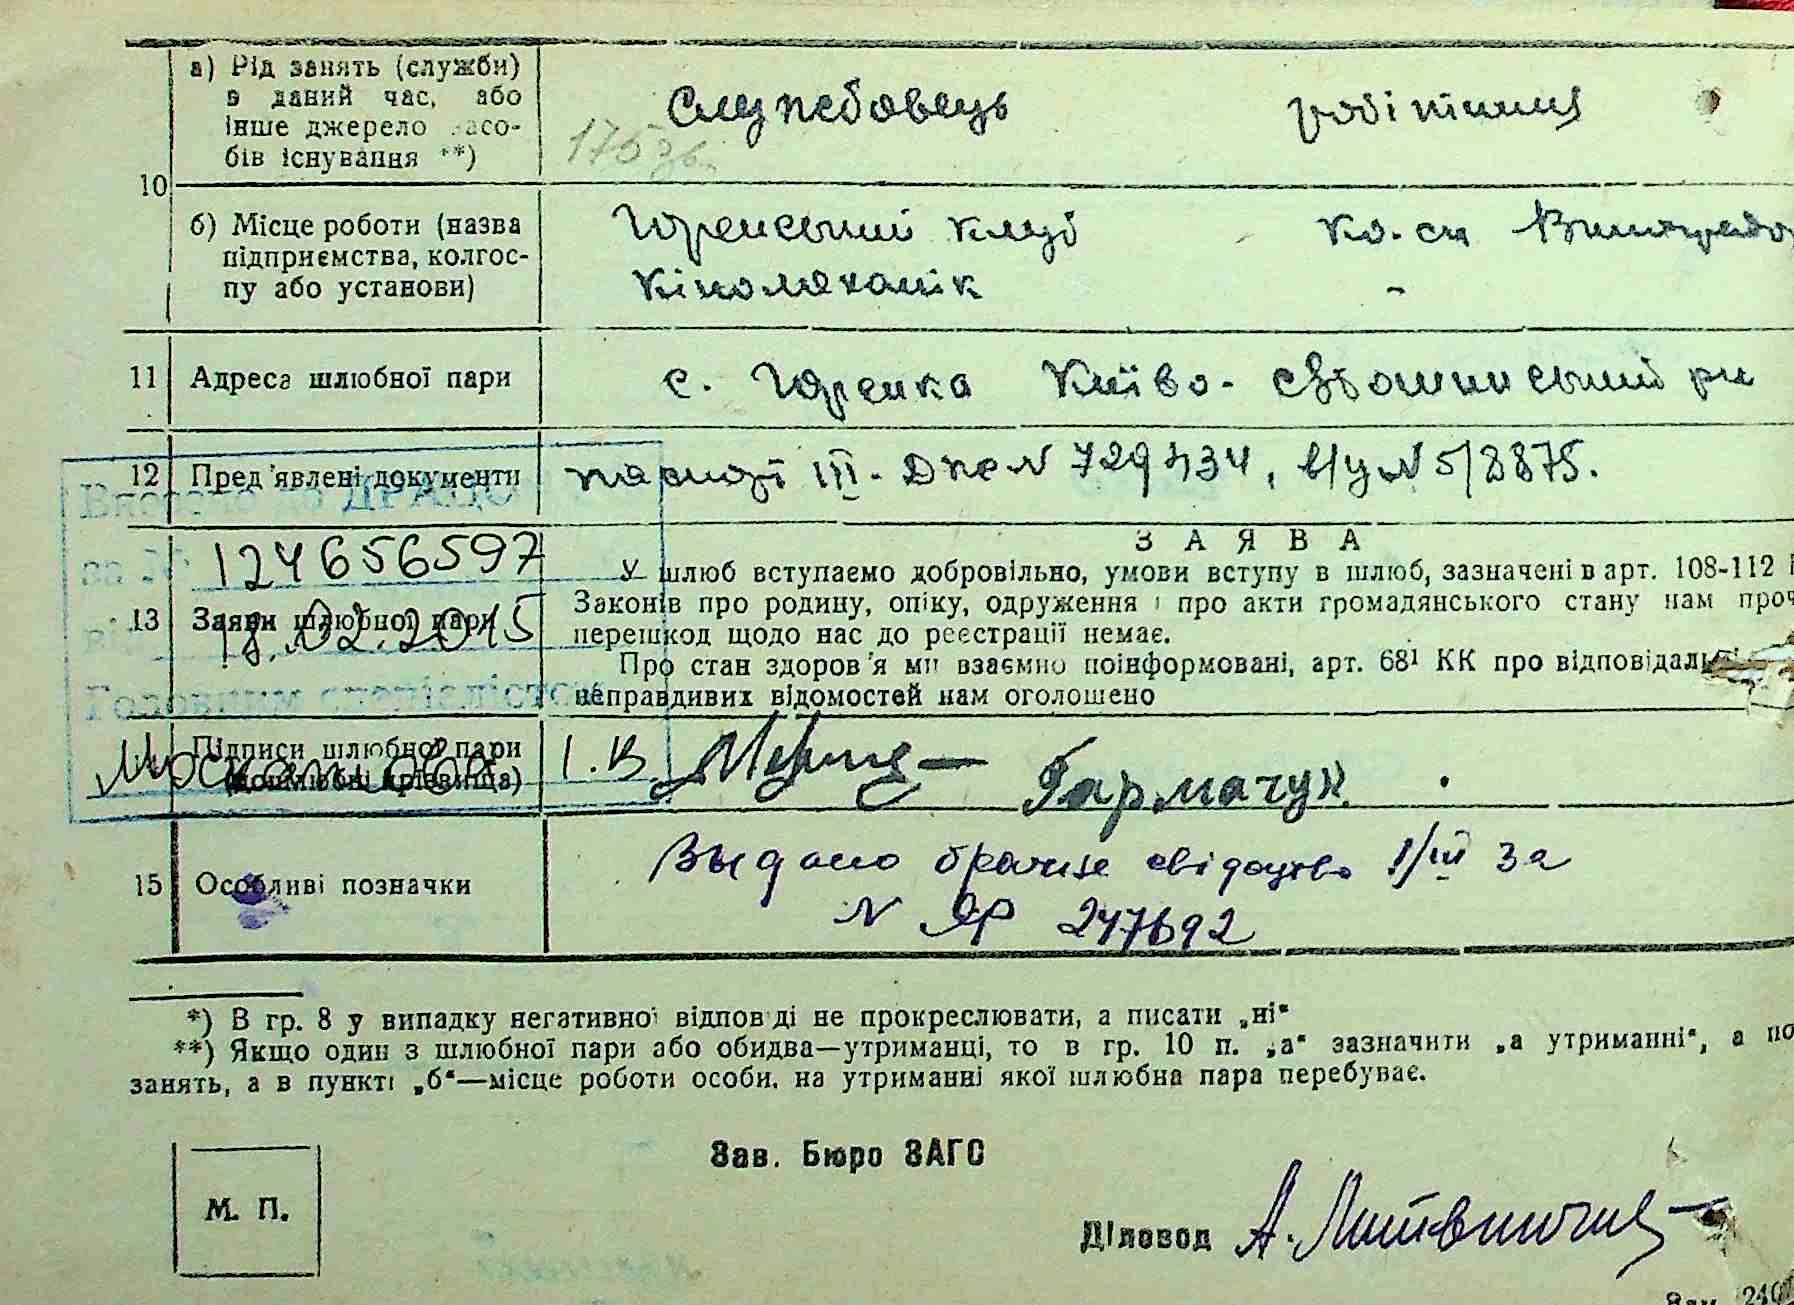 а) Рід занять (служби) в даний час, або інше джерело засобів існування **)
Службовець робітниця
175 зв.
10
б) Місце роботи (назва підприємства, колгоспу або установи)
Горенський клуб
кіномеханік
-
11 Адреса шлюбної пари
с. Горенка Києво-Святошинський рн
12 Пред'явлені документи
паспорт III-ДПС N 729434, в/у N 5/8875.
Внесено до ДРАЦС
за № 124656597
від 18.02.2015
Головним спеціалістом
13 Заяви шлюбної пари
ЗАЯВА
У шлюб вступаємо добровільно, умови вступу в шлюб, зазначені в арт. 108-112
Законів про родину, опіку, одруження і про акти громадянського стану нам
перешкод щодо нас до реєстрації немає.
Про стан здоров'я ми взаємно поінформовані, арт. 68¹ КК про
неправдивих відомостей нам оголошено
Підписи шлюбної пари
(дошлюбні прізвища)
І.В.
Гармачук
15 Особливі позначки
Выдано брачне свідоцтво 1/III за
N ЯР 247692
*) В гр. 8 у випадку негативної відповіді не прокреслювати, а писати „ні“
**) Якщо один з шлюбної пари або обидва—утриманці, то в гр. 10 п. „а“ зазначити „а утриманні“, а по
занять, а в пункті „б“—місце роботи особи, на утриманні якої шлюбна пара перебуває.
Зав. Бюро ЗАГС
М. П.
Діловод А.